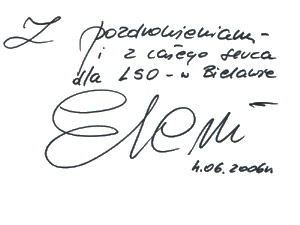 Z pozdrowieniami -
i z całego serca
dla LSO - w Bielawie
Eleni
4.06.2006r